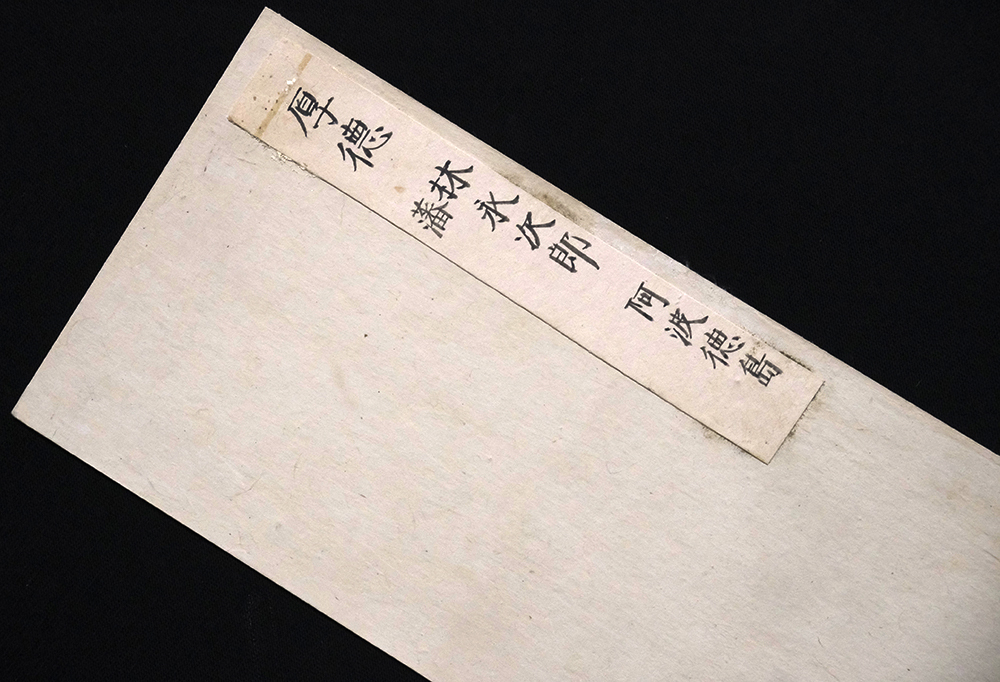 厚德
林永次郎
藩
阿波德島